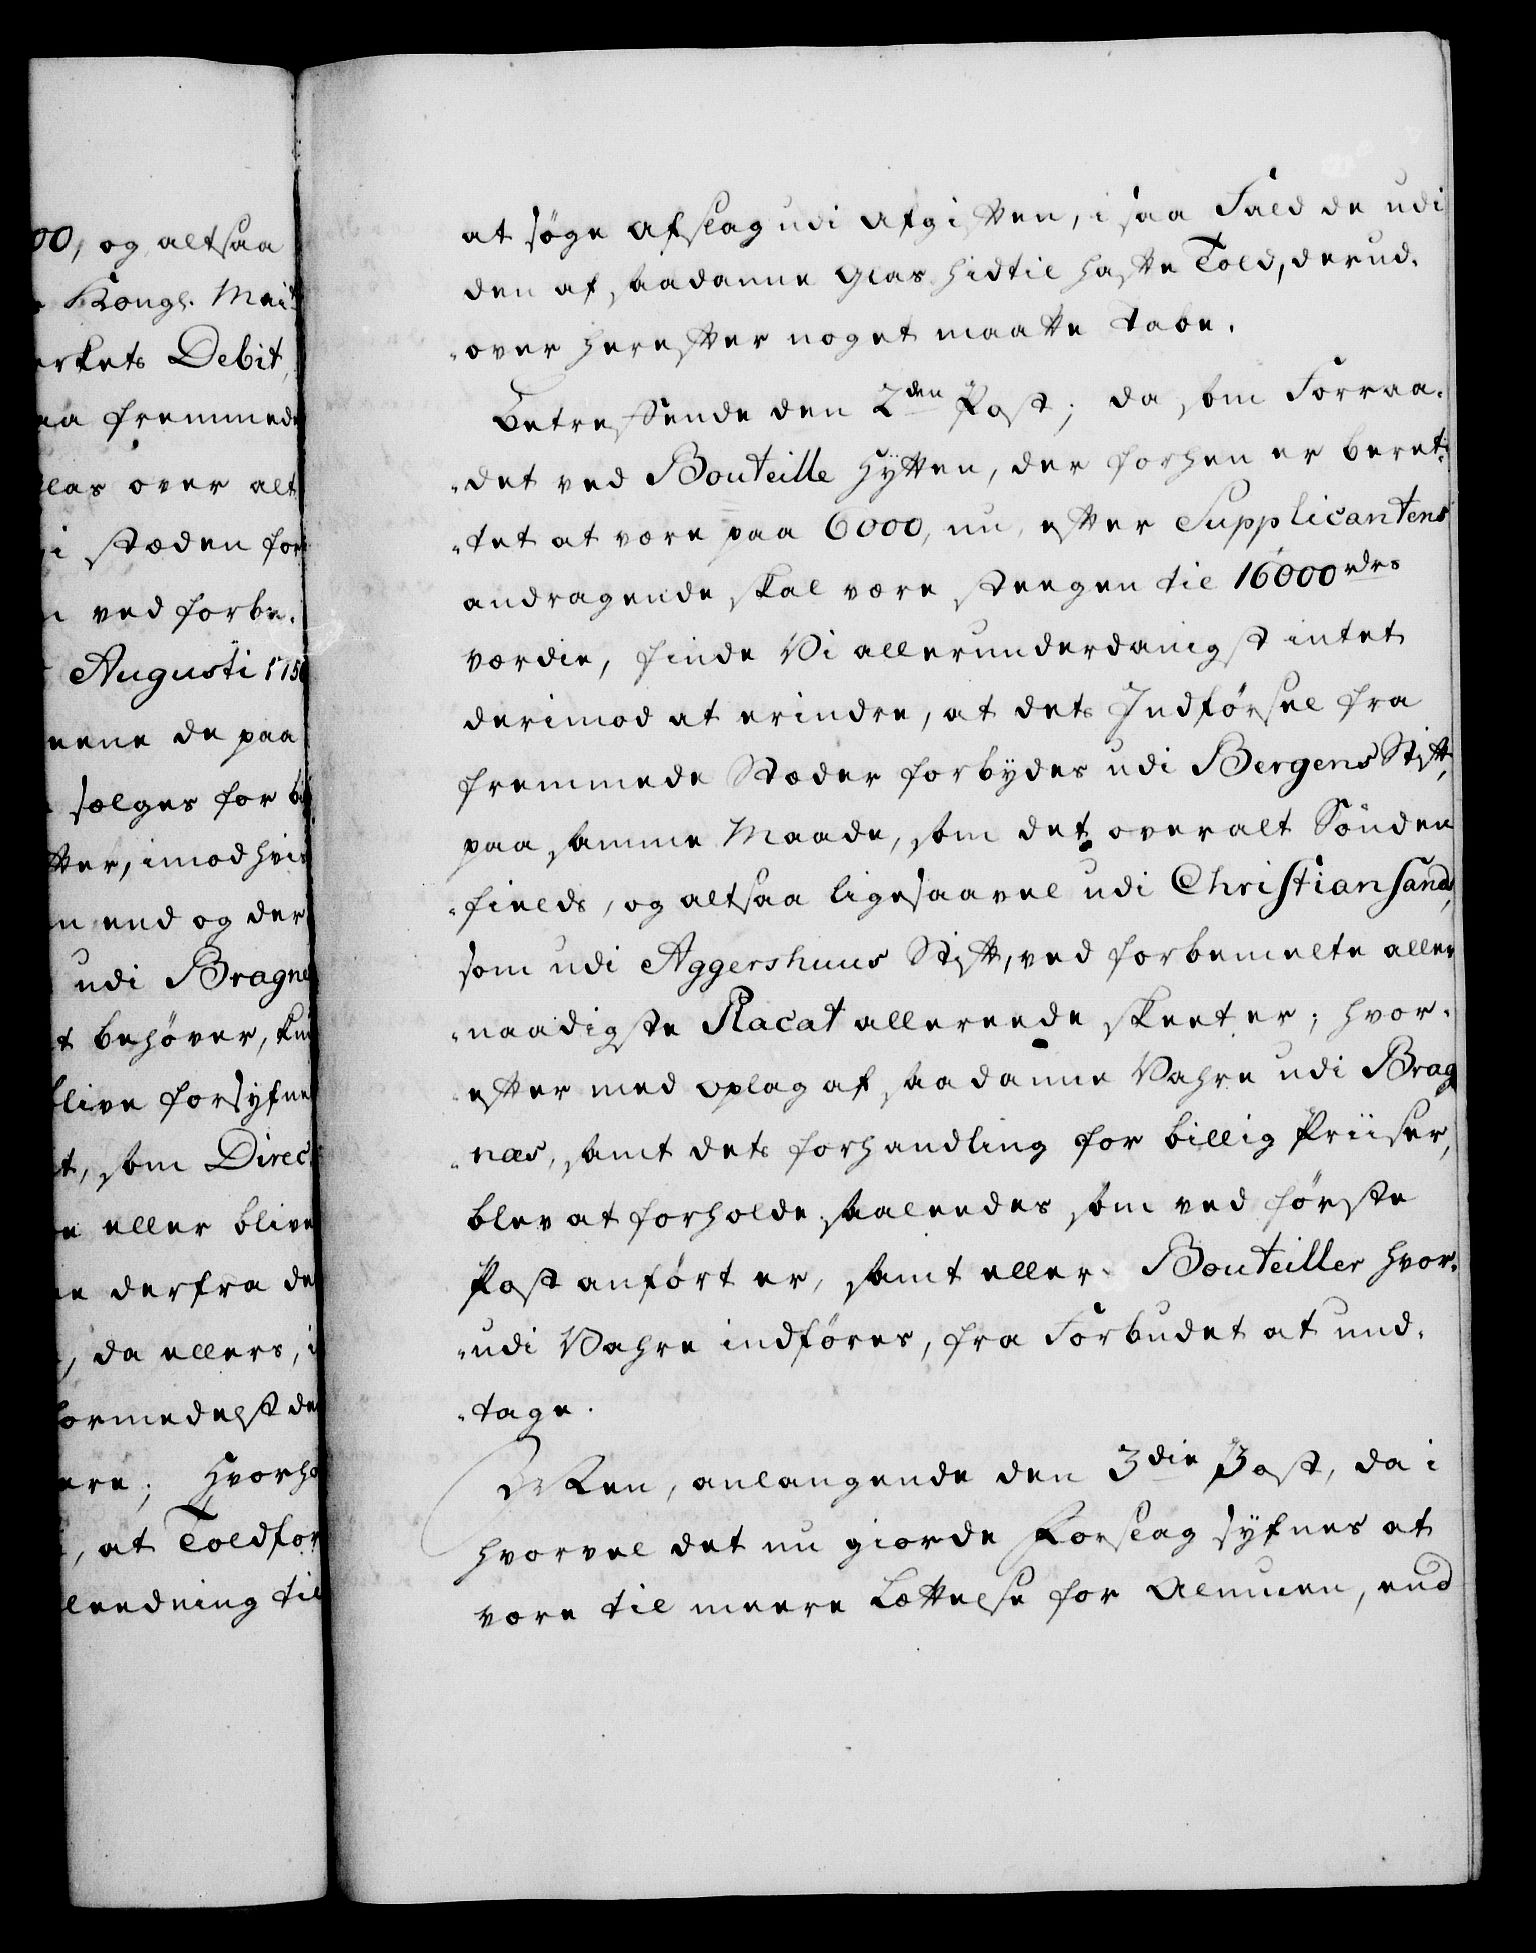 00, og altsaa
Kongl. Mai
rkets Debit,
aa fremmede
las over alt
i stæden for
ved forbe-
Augusti 175
eene de paa
sælges for
ter, imod hvis
end og der
udi Bragne
behøver, kun
blive forsyfne
t, som Direc
eller blive
derfra de
, da ellers, i
formedelst de
ere; hvorho
, at Toldfor
leedning til
at søge Afslag udi Afgiften, i saa Fald de udi
den af saadanne Glas hidtil hafte Told, derud-
-over herefter noget maatte tabe.
Betreffende den 2den Post; da som Forraa-
-det ved Bouteille Hytten, der forhen er beret-
-tet at være paa 6000, nu, efter Supplicantens
andragende skal være steegen til 16000 rdrs
værdie, finde Vi allerunderdanigst intet
derimod at erindre, at dets Indførsel fra
fremmede Stæder forbydes udi Bergens Stift,
paa samme Maade, som det overalt Sønden
-fields, og altsaa ligesaavel udi Christiansands,
som udi Aggershuus Stift, ved forbemelte aller
-naadigste Placat allereede skeet er; hvor-
-efter med oplag af saadanne Vahre udi Brag
-næs, samt dets forhandling for billig Priiser,
blev at forholde saaleedes som ved første
Post anført er, samt eller Bouteiller hvor-
-udi Vahre indføres, fra Forbudet at und-
-tage.
Men, anlangende den 3die Post, da i
hvorvel det nu giorde Forslag syfnes at
være til meere Lættelse for Almuen, end